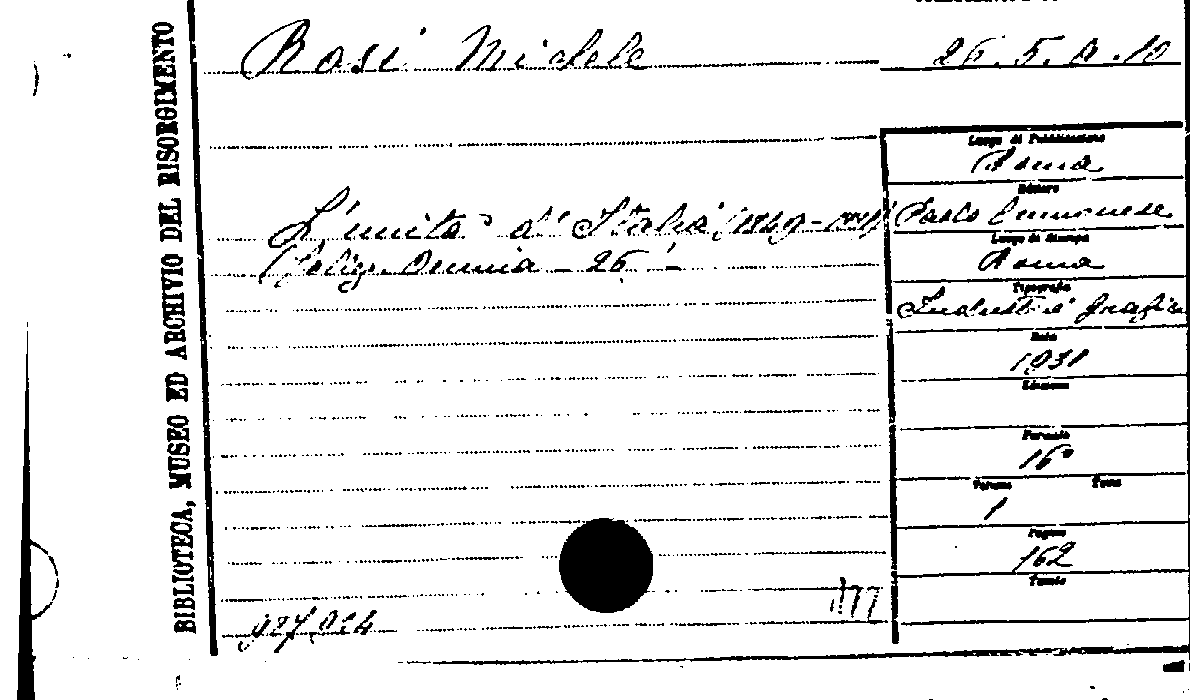 BIBLIOTECA, MUSEO ED ARCHIVIO DEL RISORGIMENTO
Rosi Michele
26.5.A.10
L'unità d'Italia
Poliz. Omnia - 26 -
Luogo di Pubblicazione
Roma
Editore
Paolo Cremonese
Luogo di Stampa
Roma
Tipografia
Industria Grafica
Data
1931
Edizione
Formato
16°
Volume Tomo
1
Pagine
162
Tavole